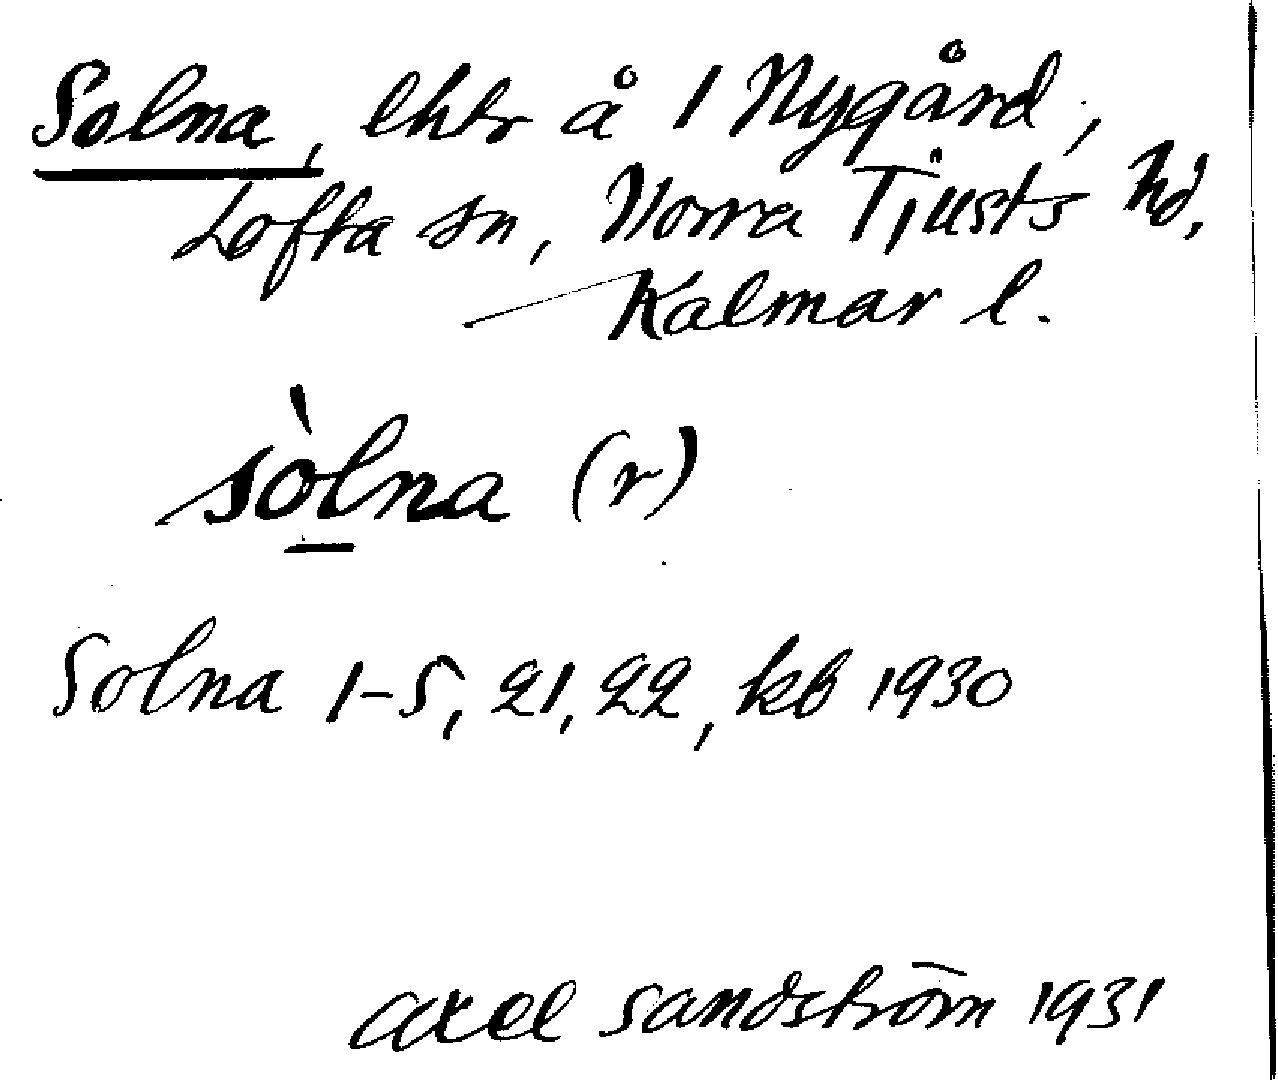 Solna, lhtr å 1 Nygård,
Lofta sn, Norra Tjusts hd,
Kalmar l.
sòlna (r)
Solna 1-5, 21, 22, kb 1930
Axel Sandström 1931